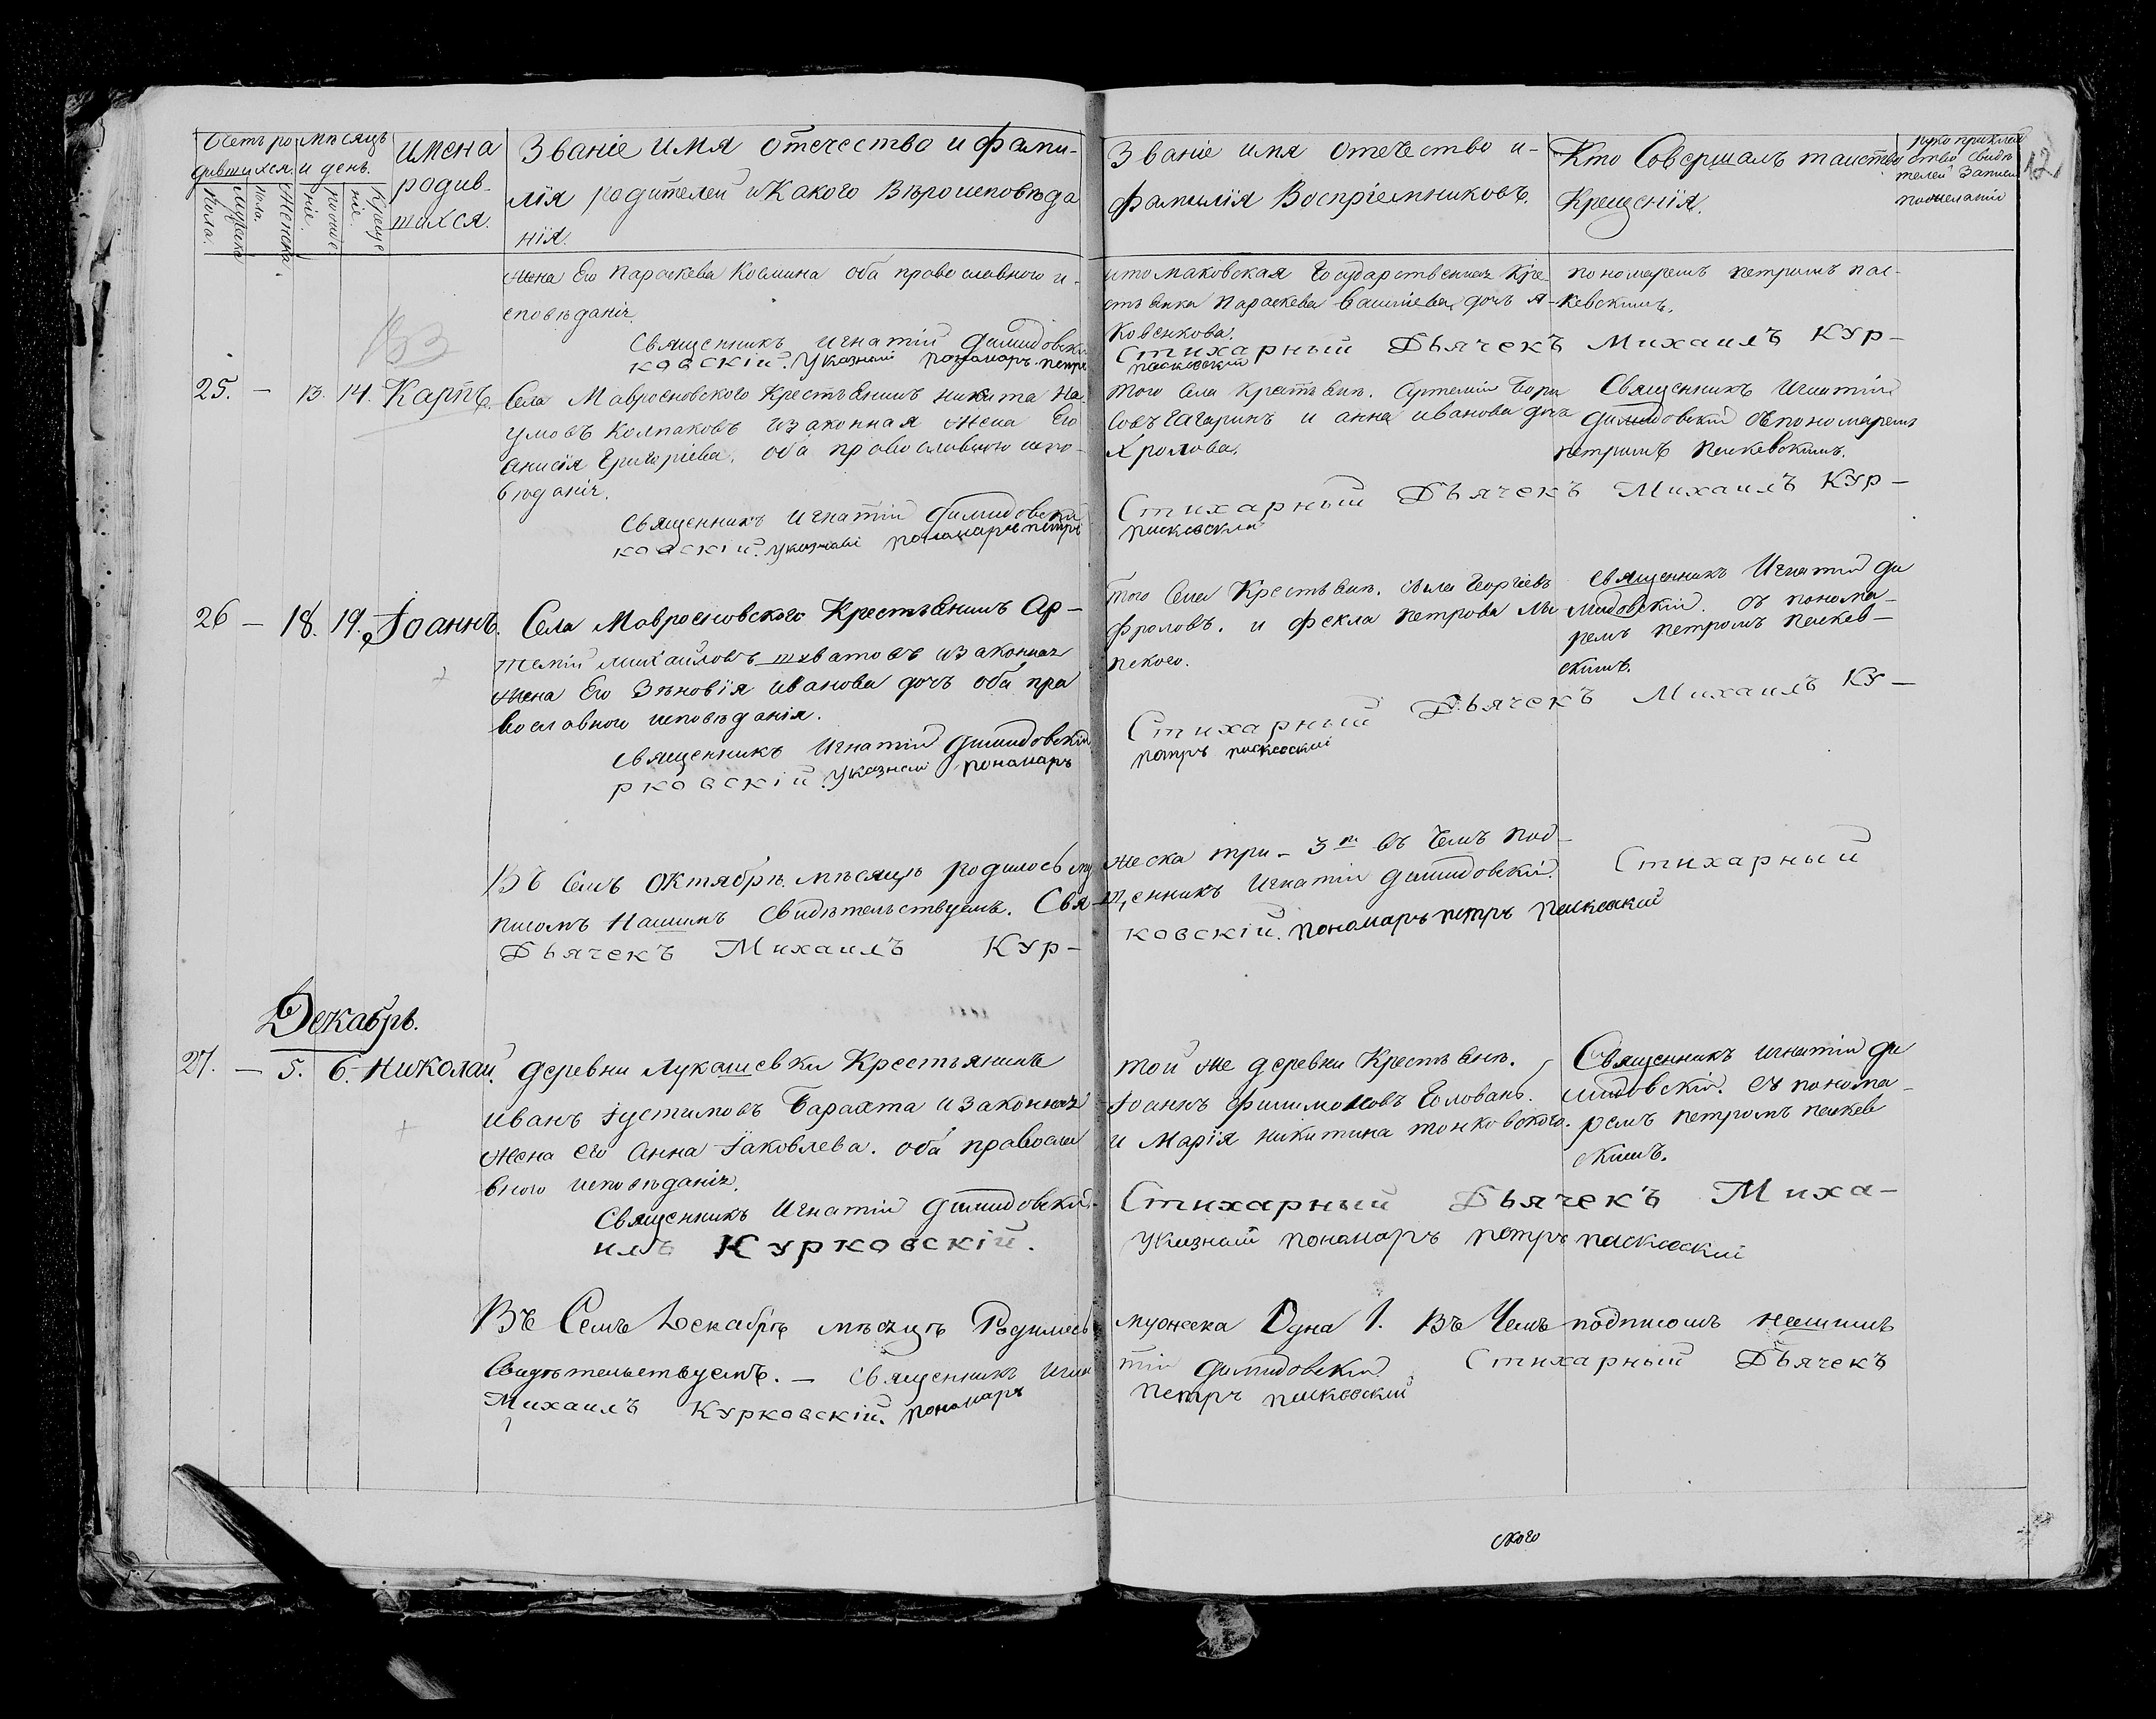 Счетъ ро
дившихся.
Мѣсяцъ
и день.
Мужеска
пола.
Женска
пола.
Креще
ніе.
Имена
родив-
шихся.
Званіе имя отечество и фами-
лія родителей и Какого Вѣроисповѣда
нія.
Званіе имя отечество и-
фамилія Воспріемниковъ.
Кто Совершалъ таинство
Крещенія.
рукоприклад
ство свидѣ
телей записи
по желанію
12
жена Его Параскева Косьмина оба православного и-
сповѣданія
Священникъ Игнатій Димидовскій
ковскій. Указный понамарь петръ
Государственная Кре-
стьянка Параскева дочь Я-
ковенкова.
Стихарный Дьячекъ Михаилъ Кур-
пасковскій
пономаремъ петромъ пас-
кевскимъ.
25. - 13. 14. Карпъ.
Села Мавроеновского Крестьянинъ никита На-
умовъ Колпаковъ и законная жена Его
Анисія Григоріева. оба православного испо-
вѣданія.
Священникъ Игнатій Димидовскій
ковскій. указный понамарь петръ
того Села Крестьян. Артемій Бори
совъ Гагаринъ и анна иванова дочь
Хролова.
Стихарный Дьячекъ Михаилъ Кур-
пасковскій
Священникъ Игнатій
Димидовскій съ пономаремъ
петромъ паскевскимъ.
26 - 18. 19. Іоаннъ.
Села Мавроеновского Крестьянинъ Ар-
темій михайловъ и законная
жена Его Зѣновія Иванова дочь оба пра
вославного исповѣданія.
Священникъ Игнатій Димидовскій
рковскій. Указный понамарь
того Села Крестьян. Илья Георгіевъ
фроловъ. и Фекла петрова
Стихарный Дьячекъ Михаилъ Ку-
петръ пасковскій
Священникъ Игнатій Ди
мидовскій. съ понома-
ремъ петромъ паскев-
скимъ.
Въ Семъ Октябрѣ мѣсяцѣ родилось му
жеска три - 3 въ Чемъ под-
писомъ Нашимъ Свидѣтельствуемъ. Свя-
щенникъ Игнатій Димидовскій. Стихарный
Дьячекъ Михаилъ Кур-
ковскій. понамарь петръ пасковскій
Декабрь.
27. - 5. 6. Николай.
деревни Лукашевки Крестьянинъ
иванъ Іустимовъ Барахта и законная
жена его Анна Іаковлева. оба правосла
вного исповѣданія.
Священникъ Игнатій Димидовскій.
илъ Курковскій.
той же деревни Крестьян.
Іоаннъ Филимоновъ Головань.
и Марія никитина тонковского.
Стихарный Дьячекъ Миха-
указный понамарь петръ пасковскій
Священникъ Игнатій Ди
мидовскій. съ понома-
ремъ петромъ паскев
скимъ.
Въ Семъ Декабрѣ мѣсяцѣ Родилась
мужеска Одна 1. Въ Чемъ подписомъ нашимъ
Свидѣтельствуемъ. - Священникъ Игна
тій Димидовскій. Стихарный Дьячекъ
Михаилъ Курковскій. понамарь
петръ пасковскій
ского